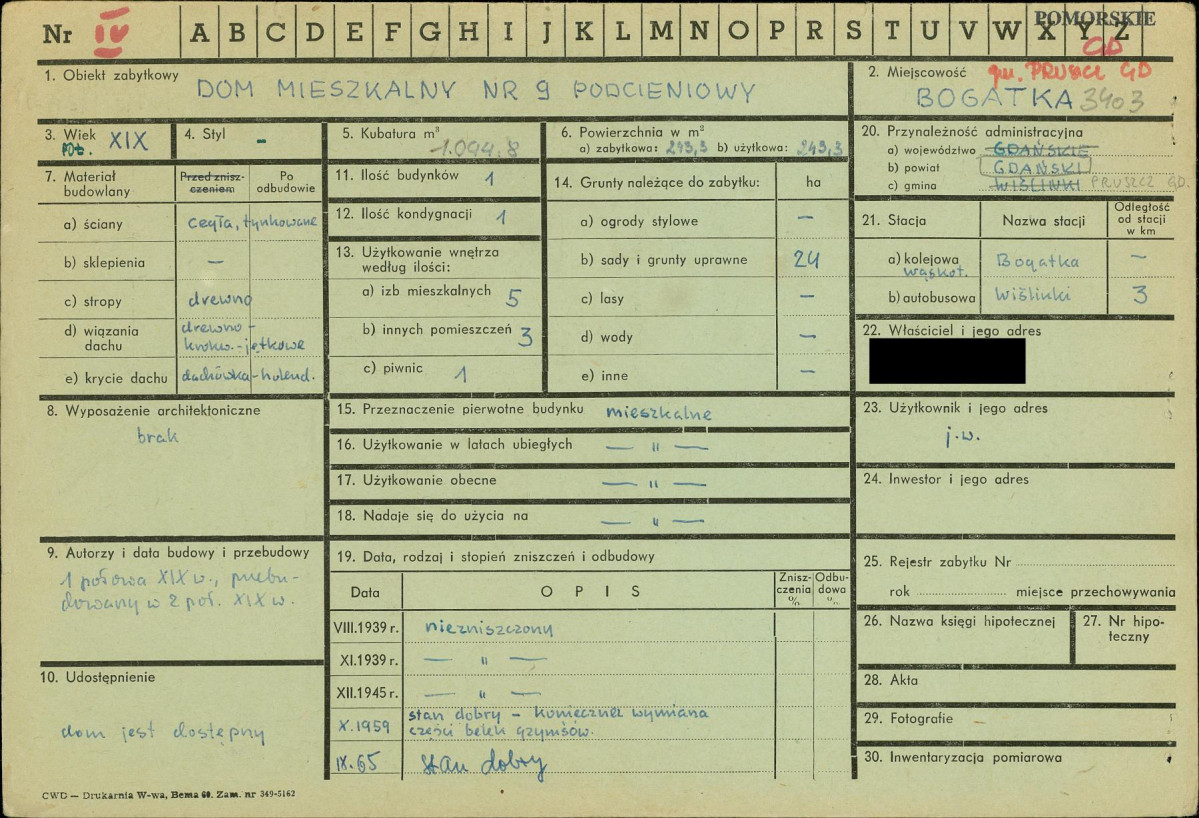 Nr IV A B C D E F G H I J K L M N O P R S T U V W X Y Z
POMORSKIE
GD
1. Obiekt zabytkowy
DOM MIESZKALNY NR 9 PODCIENIOWY
2. Miejscowość gm. PRUSZCZ GD
BOGATKA 3403
3. Wiek
poł. XIX
4. Styl -
5. Kubatura m³
1.094,8
6. Powierzchnia w m²
a) zabytkowa: 243,3 b) użytkowa: 243,3
20. Przynależność administracyjna
a) województwo GDAŃSKIE
b) powiat GDAŃSKI
c) gmina WIŚLINKI PRUSZCZ GD.
7. Materiał budowlany
Przed zniszczeniem
Po odbudowie
a) ściany cegła, tynkowane
b) sklepienia —
c) stropy drewno
d) wiązania dachu drewno - krokw.-jętkowe
e) krycie dachu dachówka-holend.
11. Ilość budynków 1
12. Ilość kondygnacji 1
13. Użytkowanie wnętrza
według ilości:
a) izb mieszkalnych 5
b) innych pomieszczeń 3
c) piwnic 1
14. Grunty należące do zabytku: ha
a) ogrody stylowe —
b) sady i grunty uprawne 24
c) lasy —
d) wody —
e) inne —
21. Stacja Nazwa stacji Odległość od stacji w km
a) kolejowa wąskot. Bogatka —
b) autobusowa Wiślinki 3
22. Właściciel i jego adres
8. Wyposażenie architektoniczne
brak
15. Przeznaczenie pierwotne budynku mieszkalne
16. Użytkowanie w latach ubiegłych — " —
17. Użytkowanie obecne — " —
18. Nadaje się do użycia na — " —
23. Użytkownik i jego adres
j.w.
24. Inwestor i jego adres
9. Autorzy i data budowy i przebudowy
1 połowa XIX w., przebu-
dowany w 2 poł. XIX w.
10. Udostępnienie
dom jest dostępny
19. Data, rodzaj i stopień zniszczeń i odbudowy
Data OPIS Zniszczenia % Odbudowa %
VIII.1939 r. niezniszczony
XI.1939 r. — " —
XII.1945 r. — " —
X.1959 stan dobry - konieczna wymiana
części belek gzymsów.
IX.65 stan dobry
25. Rejestr zabytku Nr
rok miejsce przechowywania
26. Nazwa księgi hipotecznej
27. Nr hipo-
teczny
28. Akta
29. Fotografie
30. Inwentaryzacja pomiarowa
CWD — Drukarnia W-wa, Bema 60. Zam. nr 349-5162